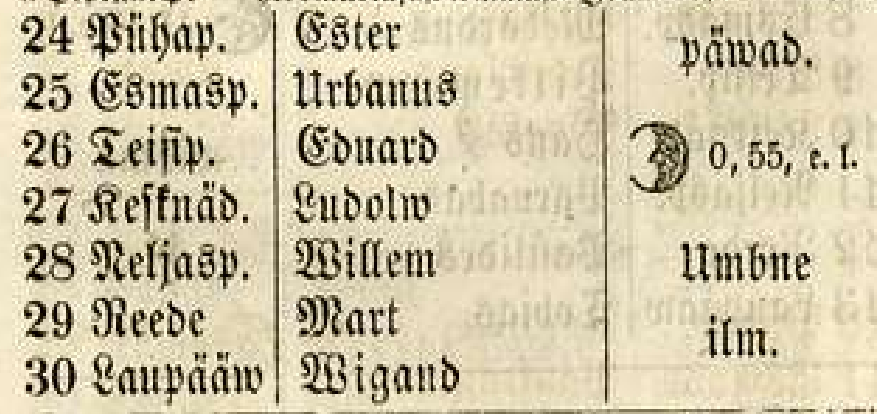 24 Pühap. Ester päwad.
25 Esmasp. Urbanus
26 Teisip. Eduard 0,55, e. l.
27 Kesknäd. Ludolw
28 Neljasp. Willem Umbne
29 Reede Mart ilm.
30 Laupääw Wigand